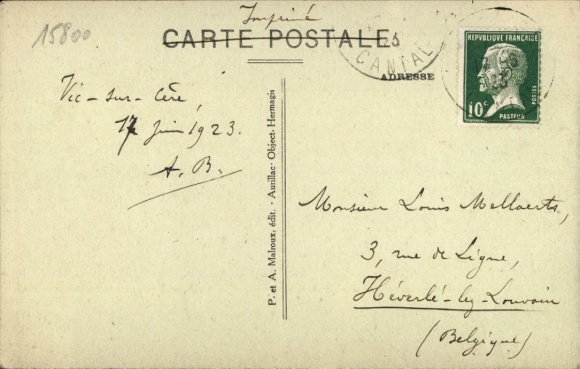 15800
Imprimé
CARTE POSTALE
CANTAL
ADRESSE
REPUBLIQUE FRANÇAISE
10c
POSTES
PASTEUR
Vic-sur-Cère,
17 juin 1923.
A. B.
P. et A. Malroux, édit. - Aurillac - Object. Hermagis
Monsieur Louis Mellaerts,
3, rue de Ligne,
Héverlé-lez-Louvain
(Belgique)